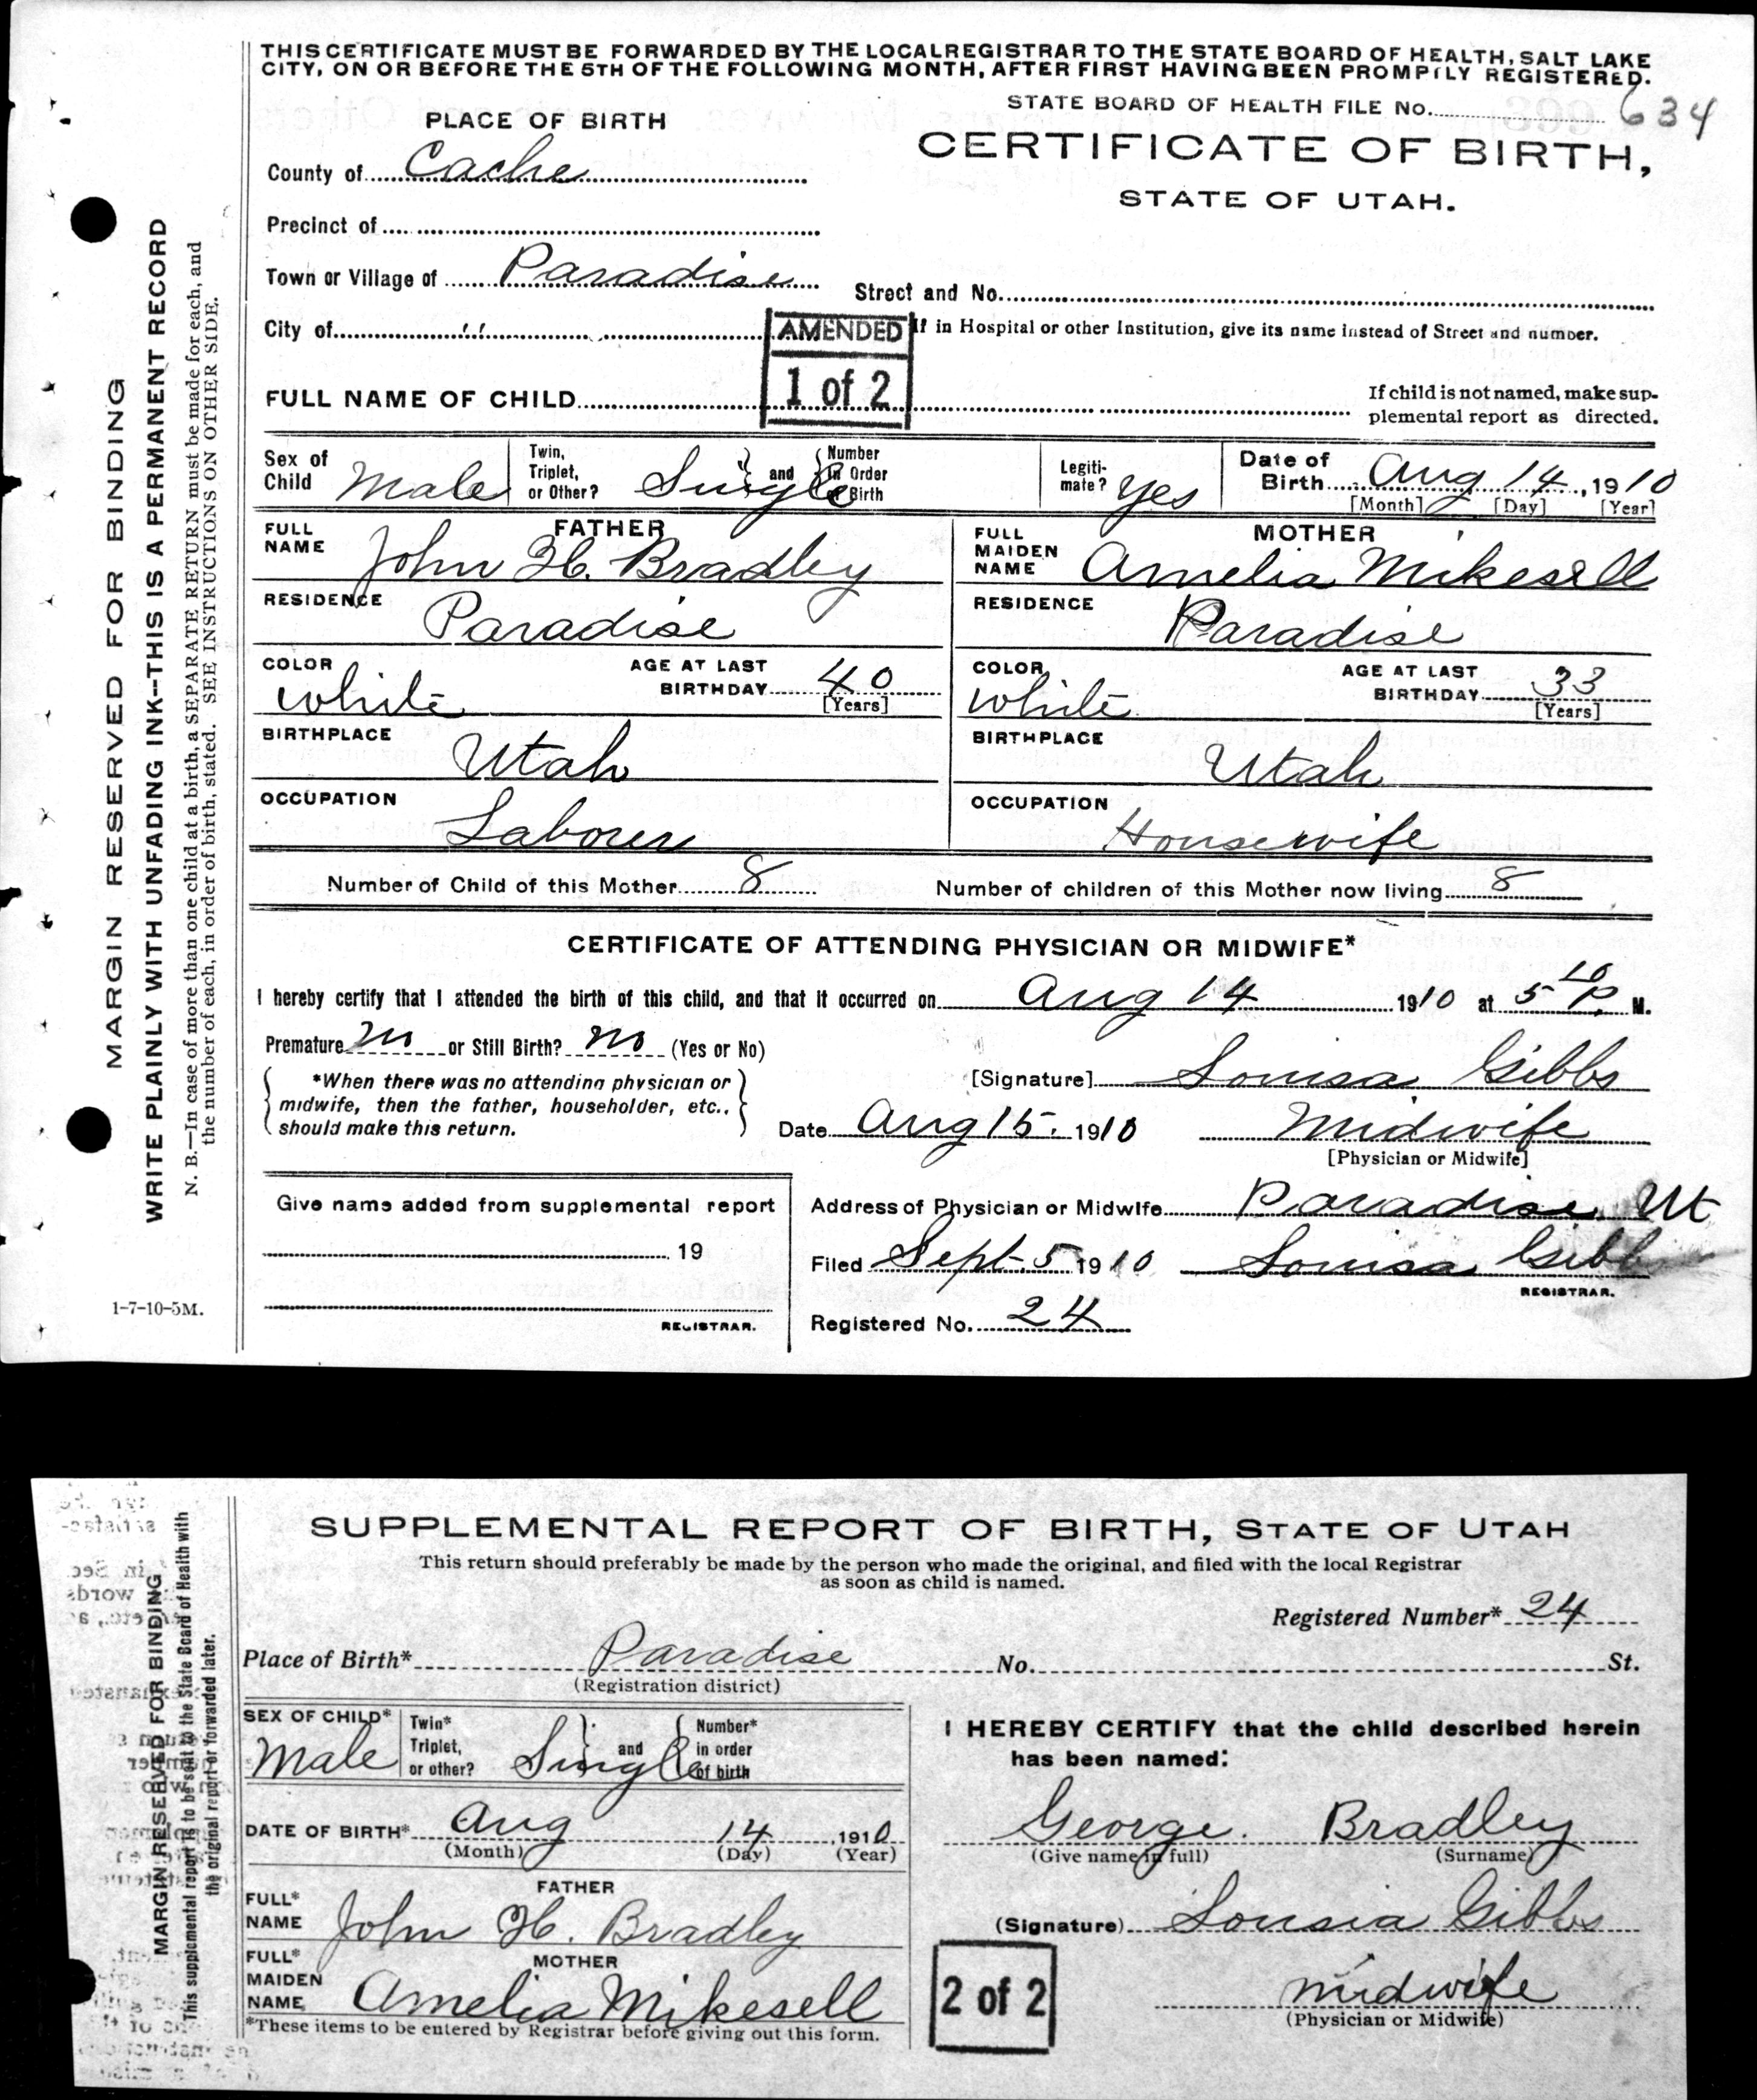 THIS CERTIFICATE MUST BE FORWARDED BY THE LOCAL REGISTRAR TO THE STATE BOARD OF HEALTH, SALT LAKE
CITY, ON OR BEFORE THE 5TH OF THE FOLLOWING MONTH, AFTER FIRST HAVING BEEN PROMPTLY REGISTERED.
STATE BOARD OF HEALTH FILE No. 634
PLACE OF BIRTH
CERTIFICATE OF BIRTH,
STATE OF UTAH.
County of Cache
Precinct of
Town or Village of Paradise
Street and No.
City of "
AMENDED
If in Hospital or other Institution, give its name instead of Street and number.
1 of 2
FULL NAME OF CHILD
If child is not named, make sup-
plemental report as directed.
Sex of Child Male
Twin, Triplet, or Other? Single and Number in Order of Birth
Legiti-mate? Yes
Date of Birth Aug 14, 1910
[Month] [Day] [Year]
FATHER
FULL NAME John H. Bradley
MOTHER
FULL MAIDEN NAME Amelia Mikesell
RESIDENCE Paradise
RESIDENCE Paradise
COLOR White AGE AT LAST BIRTHDAY 40 [Years]
COLOR White AGE AT LAST BIRTHDAY 33 [Years]
BIRTHPLACE Utah
BIRTHPLACE Utah
OCCUPATION Laborer
OCCUPATION Housewife
Number of Child of this Mother 8 Number of children of this Mother now living 8
CERTIFICATE OF ATTENDING PHYSICIAN OR MIDWIFE*
I hereby certify that I attended the birth of this child, and that it occurred on Aug 14 1910 at 5 P. M.
Premature no or Still Birth? no (Yes or No)
*When there was no attending physician or
midwife, then the father, householder, etc.,
should make this return.
[Signature] Louisa Gibbs
Date Aug 15. 1910 Midwife
[Physician or Midwife]
Give name added from supplemental report
19
REGISTRAR.
Address of Physician or Midwife Paradise Ut
Filed Sept. 5 1910 Louisa Gibb
REGISTRAR.
Registered No. 24
1-7-10-5M.
MARGIN RESERVED FOR BINDING
WRITE PLAINLY WITH UNFADING INK--THIS IS A PERMANENT RECORD
N. B.—In case of more than one child at a birth, a SEPARATE RETURN must be made for each, and
the number of each, in order of birth, stated. SEE INSTRUCTIONS ON OTHER SIDE.
SUPPLEMENTAL REPORT OF BIRTH, STATE OF UTAH
This return should preferably be made by the person who made the original, and filed with the local Registrar
as soon as child is named.
Registered Number* 24
Place of Birth* Paradise No. St.
(Registration district)
SEX OF CHILD* Male
Twin* Triplet, or other? Single and Number* in order of birth
DATE OF BIRTH* Aug 14, 1910
(Month) (Day) (Year)
FATHER
FULL* NAME John H. Bradley
MOTHER
FULL* MAIDEN NAME Amelia Mikesell
*These items to be entered by Registrar before giving out this form.
I HEREBY CERTIFY that the child described herein
has been named:
George. Bradley
(Give name in full) (Surname)
(Signature) Lousia Gibbs
2 of 2
midwife
(Physician or Midwife)
MARGIN RESERVED FOR BINDING
This supplemental report is to be sent to the State Board of Health with
the original report or forwarded later.